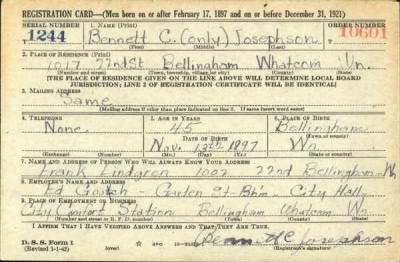 REGISTRATION CARD—(Men born on or after February 17, 1897 and on or before December 31, 1921)
SERIAL NUMBER 1. NAME (Print) ORDER NUMBER
1244 Bennett C. (only) Josephson 10601
(First) (Middle) (Last)
2. PLACE OF RESIDENCE (Print)
1017 22nd St Bellingham Whatcom Wn.
(Number and street) (Town, township, village, or city) (County) (State)
[THE PLACE OF RESIDENCE GIVEN ON THE LINE ABOVE WILL DETERMINE LOCAL BOARD
JURISDICTION; LINE 2 OF REGISTRATION CERTIFICATE WILL BE IDENTICAL]
3. MAILING ADDRESS
Same
[Mailing address if other than place indicated on line 2. If same insert word same]
4. TELEPHONE 5. AGE IN YEARS 6. PLACE OF BIRTH
None. 45 Bellingham
DATE OF BIRTH
Nov. 13th 1897 Wn
(Mo.) (Day) (Yr.)
7. NAME AND ADDRESS OF PERSON WHO WILL ALWAYS KNOW YOUR ADDRESS
Frank Lindgren 1002 22nd Bellingham Wn
8. EMPLOYER'S NAME AND ADDRESS
Ed St - B'hm City Hall
9. PLACE OF EMPLOYMENT OR BUSINESS
City Comfort Station Bellingham Whatcom Wn
(Number and street or R. F. D. number) (Town) (County) (State)
I AFFIRM THAT I HAVE VERIFIED ABOVE ANSWERS AND THAT THEY ARE TRUE.
D. S. S. Form 1
(Revised 1-1-42) Bennett C Josephson